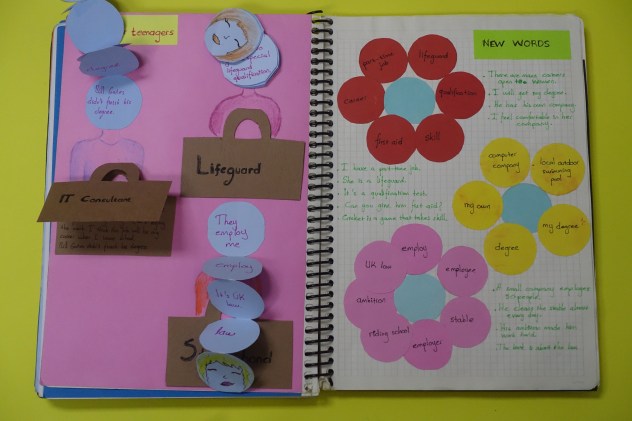 teenagers
Bill Gates
didn't finish his
degree
special
lifeguard
qualification
Lifeguard
IT Consultant
They
employ
me
employing
It's UK
law
law
NEW WORDS
part-time
job
lifeguard
career
qualification
first aid
skill
There are many careers
open to women.
I will get my degree.
He has his own company.
I feel comfortable in her
company.
I have a part-time job.
She is a lifeguard.
It's a qualification test.
Can you give him first aid?
Cricket is a game that takes skill.
computer
company
local outdoor
swimming
pool
my own
my degree
degree
employ
UK law
employee
ambition
stable
riding school
employer
A small company employs
He cleans the stable almost
every day.
His ambition made him
work hard.